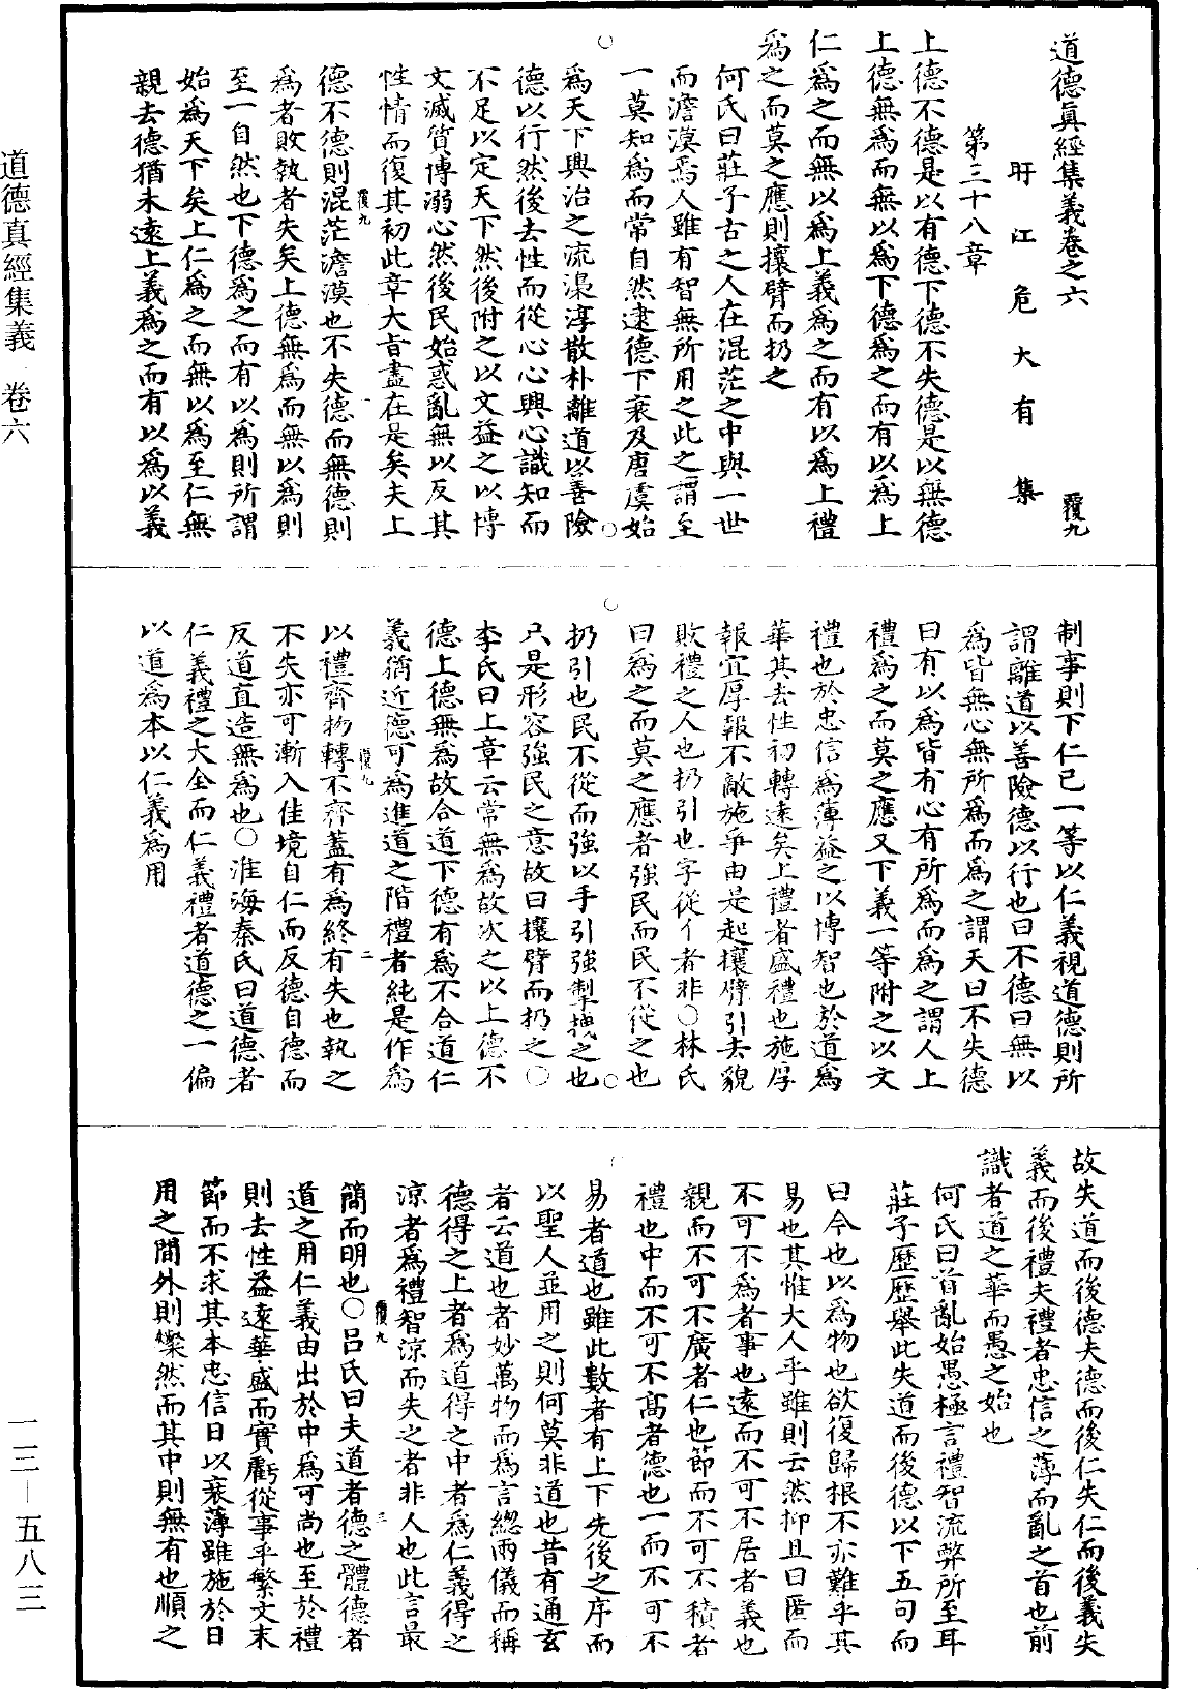 道德眞經集義卷之六　覆九
盱江危大有集
第三十八章
上德不德是以有德下德不失德是以無德
上德無爲而無以爲下德爲之而有以爲上
仁爲之而無以爲上義爲之而有以爲上禮
爲之而莫之應則攘臂而扔之
何氏曰莊子古之人在混茫之中與一世
而澹漠焉人雖有智無所用之此之謂至
一莫知爲而常自然逮德下衰及唐虞始
爲天下興治之流澆淳散朴離道以善險
德以行然後去性而從心心興心識知而
不足以定天下然後附之以文益之以博
文滅質博溺心然後民始惑亂無以反其
性情而復其初此章大旨盡在是矣夫上
德不德則混茫澹漠也不失德而無德則
爲者敗執者失矣上德無爲而無以爲則
至一自然也下德爲之而有以爲則所謂
始爲天下矣上仁爲之而無以爲至仁無
親去德猶未遠上義爲之而有以爲以義
覆九
一
制事則下仁已一等以仁義視道德則所
謂離道以善險德以行也曰不德曰無以
爲皆無心無所爲而爲之謂天曰不失德
曰有以爲皆有心有所爲而爲之謂人上
禮爲之而莫之應又下義一等附之以文
禮也於忠信爲薄益之以博智也於道爲
華其去性初轉遠矣上禮者盛禮也施厚
報宜厚報不敵施爭由是起攘臂引去貌
敗禮之人也扔引也字從亻者非○林氏
曰爲之而莫之應者強民而民不從之也
扔引也民不從而強以手引強掣拽之也
只是形容強民之意故曰攘臂而扔之○
李氏曰上章云常無爲故次之以上德不
德上德無爲故合道下德有爲不合道仁
義猶近德可爲進道之階禮者純是作爲
以禮齊物轉不齊蓋有爲終有失也執之
不失亦可漸入佳境自仁而反德自德而
反道直造無爲也○淮海秦氏曰道德者
仁義禮之大全而仁義禮者道德之一偏
以道爲本以仁義爲用
覆九
二
故失道而後德夫德而後仁失仁而後義失
義而後禮夫禮者忠信之薄而亂之首也前
識者道之華而愚之始也
何氏曰首亂始愚極言禮智流弊所至耳
莊子歷歷舉此失道而後德以下五句而
曰今也以爲物也欲復歸根不亦難乎其
易也其惟大人乎雖則云然抑且曰匿而
不可不爲者事也遠而不可不居者義也
親而不可不廣者仁也節而不可不積者
禮也中而不可不高者德也一而不可不
易者道也雖此數者有上下先後之序而
以聖人並用之則何莫非道也昔有通玄
者云道也者妙萬物而爲言總兩儀而稱
德得之上者爲道得之中者爲仁義得之
涼者爲禮智涼而失之者非人也此言最
簡而明也○呂氏曰夫道者德之體德者
道之用仁義由出於中爲可尚也至於禮
則去性益遠華盛而實虧從事乎繁文末
節而不求其本忠信日以衰薄雖施於日
用之間外則燦然而其中則無有也順之
覆九
三
道德真經集義　卷六
一二—五八三